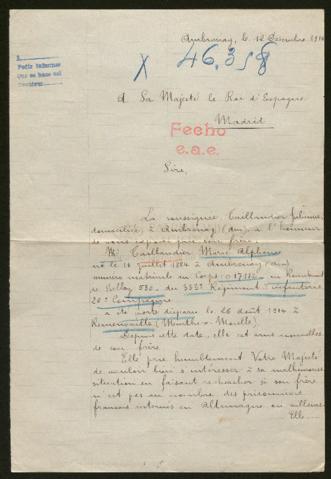 Ambronay, le 12 Décembre 1914
Pedir informes
X 46,358
A Sa Majesté le Roi d'Espagne
Madrid
Fecho
e.a.e.
Sire,
La soussignée Taillandier Julienne,
domiciliée à Ambronay (Ain), a l'honneur
de vous exposer que son frère
Mr Taillandier Marie Alphonse
né le 16 juillet 1884 à Ambronay (Ain)
numéro matricule au Corps: au Recrutement
de Belley 530. du Régiment d'infanterie
20e Compagnie
a été porté disparu le 26 août 1914 à
(Meurthe-et-Moselle).
Depuis cette date, elle est sans nouvelles
de son frère.
Elle prie humblement Votre Majesté
de vouloir bien s'intéresser à sa malheureuse
situation en faisant rechercher si son frère
n'est pas au nombre des prisonniers
français internés en Allemagne ou ailleurs.
Elle